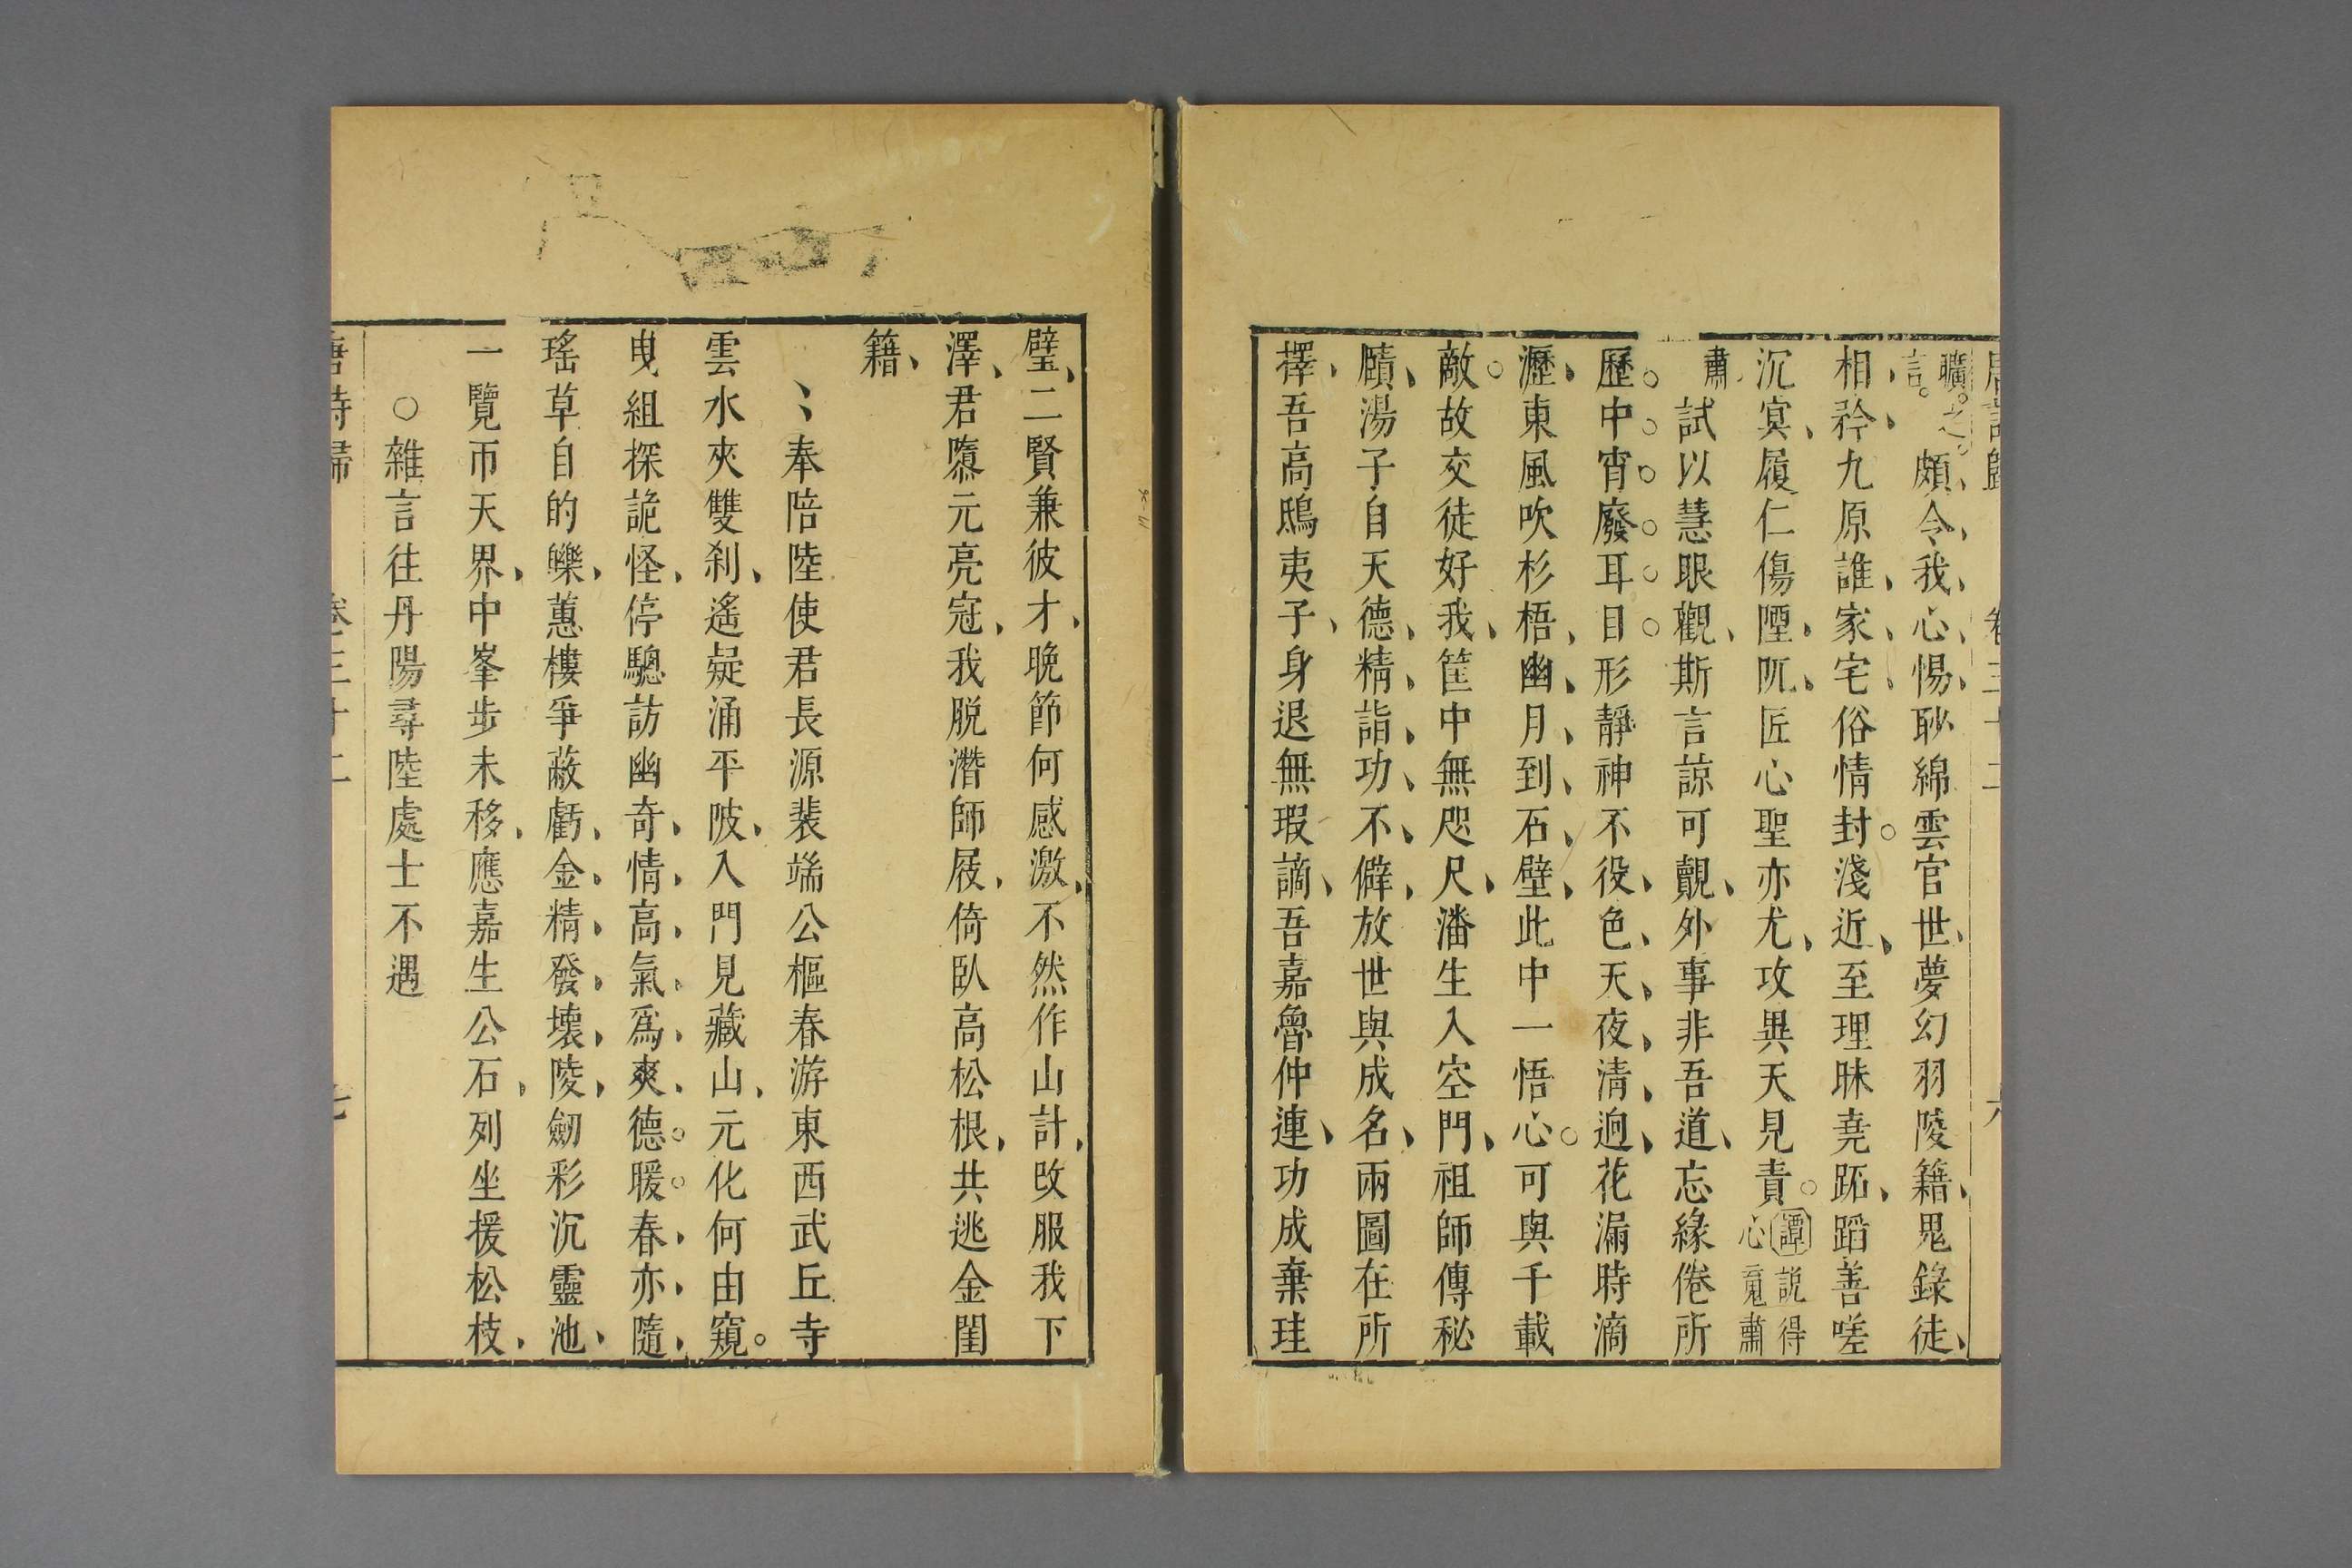 唐詩歸 卷三十二 六
曠之言 頗令我心惕眇綿雲官世夢幻羽陵籍鬼錄徒
相矜九原誰家宅俗情封淺近至理昧堯跖蹈善嗟
沉冥履仁傷堙阨匠心聖亦尤攻異天見責 譚 說得心竟肅
肅 試以慧眼觀斯言諒可覿外事非吾道忘緣倦所
歷中宵廢耳目形靜神不役色天夜清迥花漏時滴
瀝東風吹杉梧幽月到石壁此中一悟心可與千載
敵故交徒好我筐中無咫尺潘生入空門祖師傳秘
賾湯子自天德精詣功不僻放世與成名兩圖在所
擇吾高鴟夷子身退無瑕謫吾嘉魯仲連功成棄珪
璧二賢兼彼才晚節何感激不然作山計改服我下
澤君隳元亮冠我脫潛師屐倚臥高松根共逃金閨
籍
奉陪陸使君長源裴端公樞春游東西武丘寺
雲水夾雙刹遙疑涌平陂入門見藏山元化何由窺
曳組探詭怪停驄訪幽奇情高氣爲爽德暖春亦隨
瑤草自的皪蕙樓爭蔽虧金精發壞陵劒彩沉靈池
一覽帀天界中峯步未移應嘉生公石列坐援松枝
○雜言往丹陽尋陸處士不遇
唐詩歸 卷三十二 七